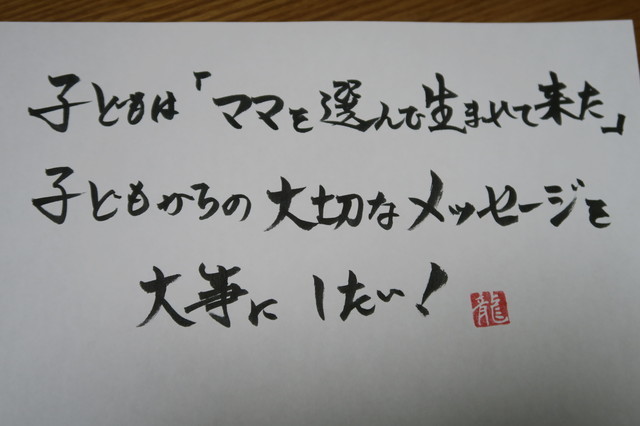 子どもは「ママを選んで生まれて来た」
子どもからの大切なメッセージを
大事にしたい！
龍